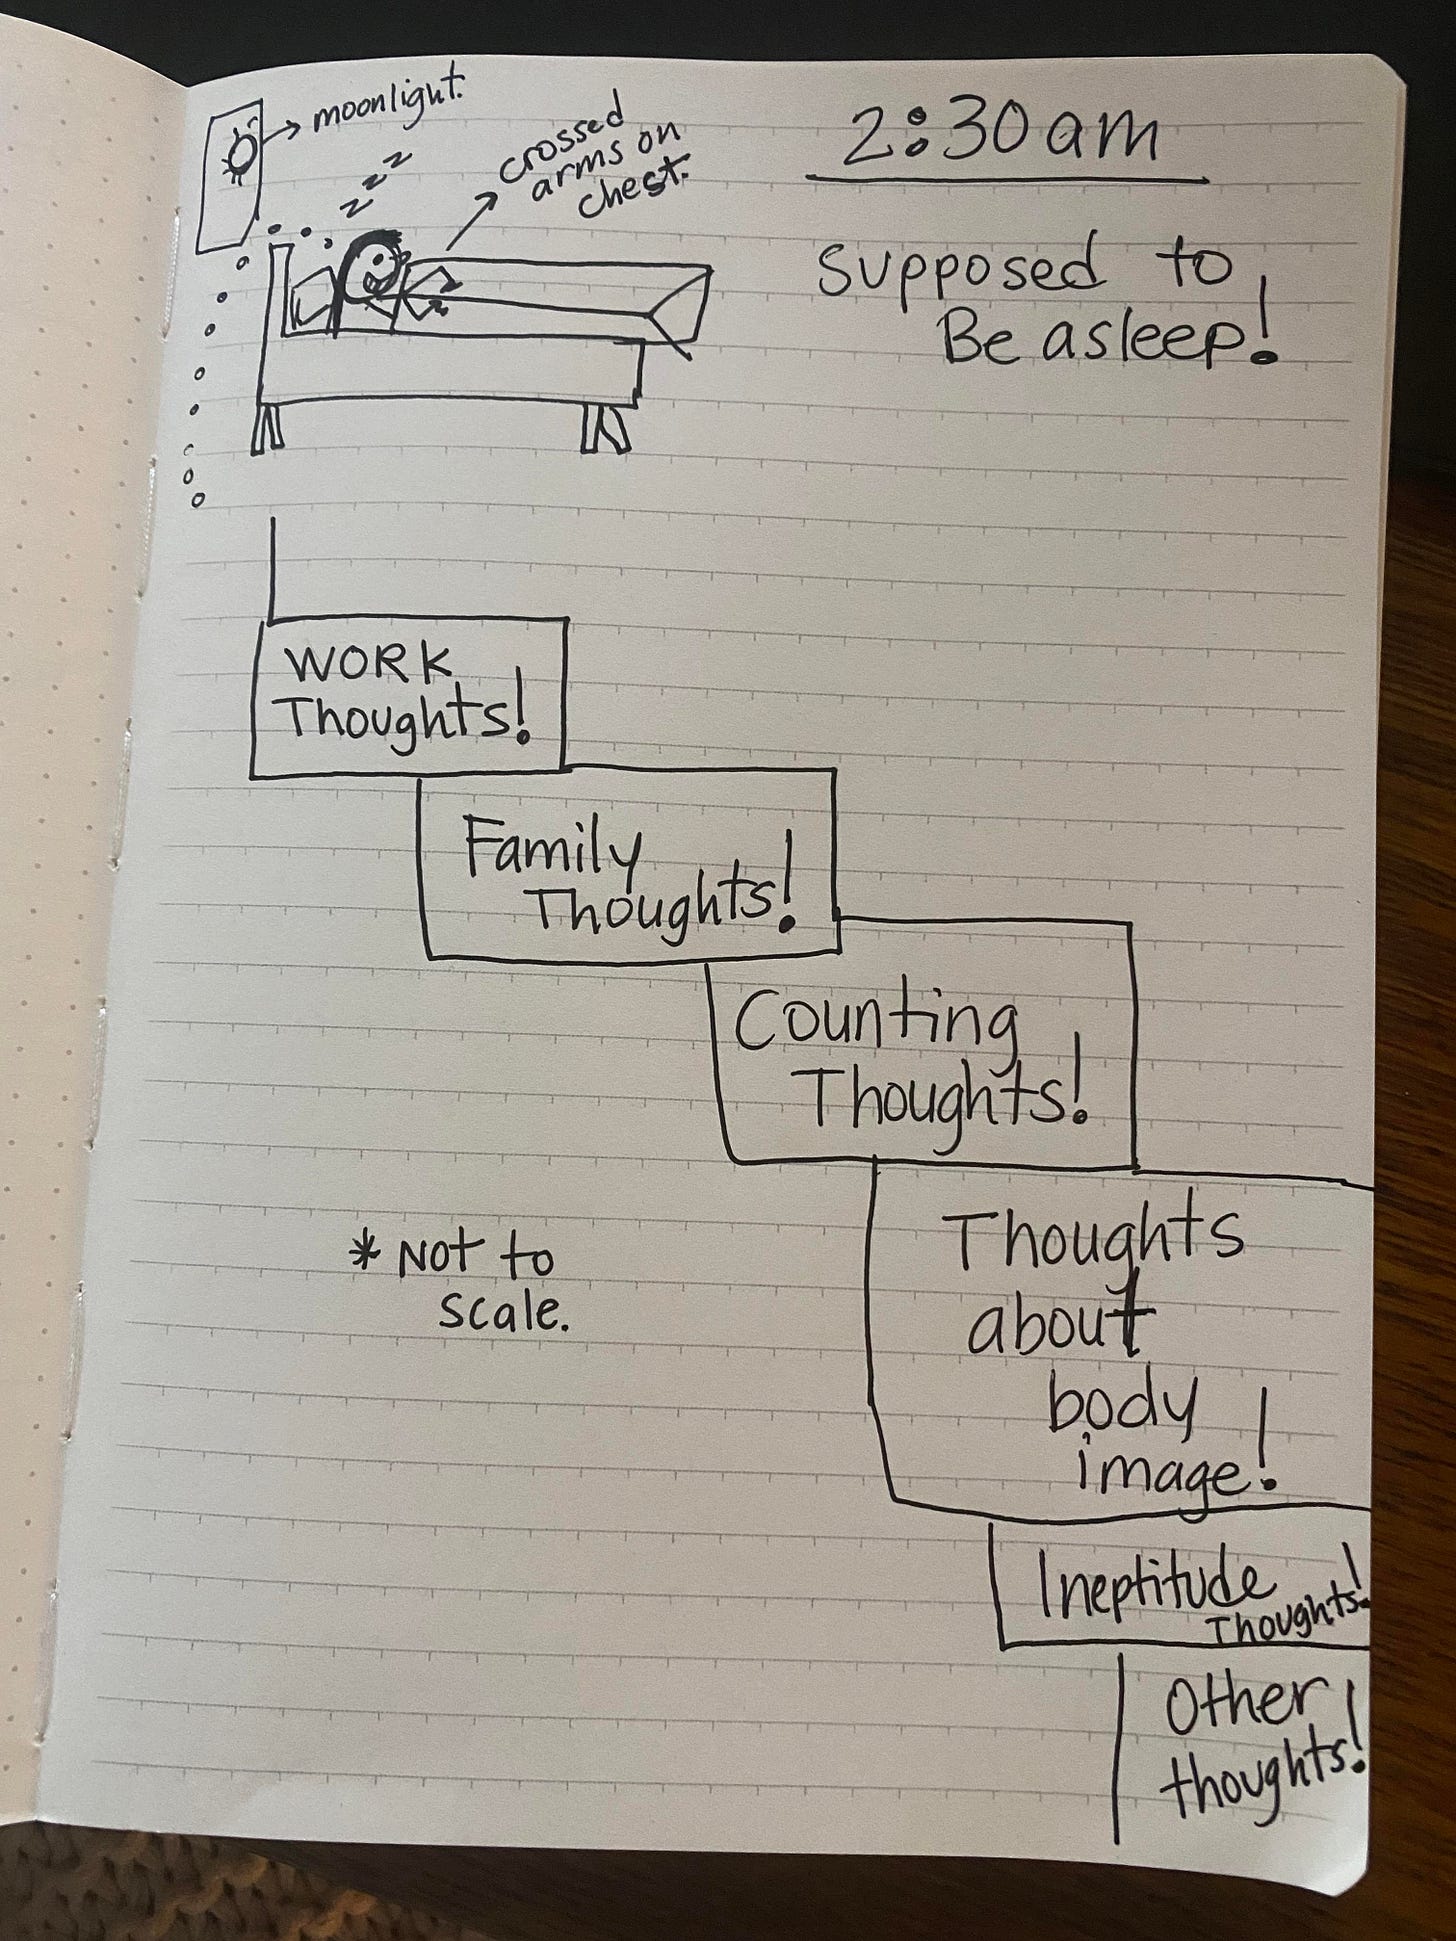 moonlight.
z z z z
crossed
arms on
chest.
2:30am
Supposed to
Be asleep!
WORK
Thoughts!
Family
Thoughts!
Counting
Thoughts!
Thoughts
about
body
image!
* Not to
scale.
Ineptitude
Thoughts!
Other
thoughts!